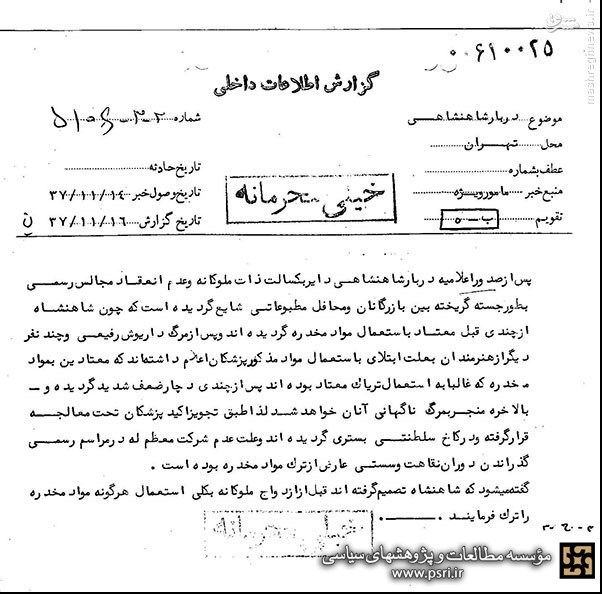 ۰۰۶۱۰۰۲۵
گزارش اطلاعات داخلی
موضوع دربار شاهنشاهی
شماره
محل تهران
عطف بشماره
تاریخ حادثه
منبع خبر مامور ویژه
تاریخ وصول خبر ۳۷/۱۱/۱۴
تقویم ب - ۵
تاریخ گزارش ۳۷/۱۱/۱۶
خیلی محرمانه
پس از صدور اعلامیه دربار شاهنشاهی دایر بکسالت ذات ملوکانه وعدم انعقاد مجالس رسمی
بطور جسته گریخته بین بازرگانان ومحافل مطبوعاتی شایع گردیده است که چون شاهنشاه
از چندی قبل معتاد باستعمال مواد مخدره گردیده اند وپس از مرگ داریوش رفیعی وچند نفر
دیگر از هنرمندان بعلت ابتلای باستعمال مواد مذکور پزشکان اعلام داشته‌اند که معتادین بمواد
مخدره که غالبا به استعمال تریاک معتاد بوده اند پس از چندی دچار ضعف شدید گردیده و -
بالاخره منجر بمرگ ناگهانی آنان خواهد شد لذا طبق تجویز اکید پزشکان تحت معالجه
قرار گرفته ودر کاخ سلطنتی بستری گردیده اند وعلت عدم شرکت معظم له در مراسم رسمی
گذراندن دوران نقاهت وسستی عارض از ترک مواد مخدره بوده است .
گفته میشود که شاهنشاه تصمیم گرفته اند قبل از ازدواج ملوکانه بکلی استعمال هرگونه مواد مخدره
را ترک فرمایند .
خیلی محرمانه
مؤسسه مطالعات و پژوهشهای سیاسی
www.psri.ir
mashreghnews.ir